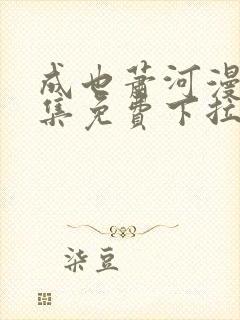 成也萧河漫
集免費下拉
柒豆